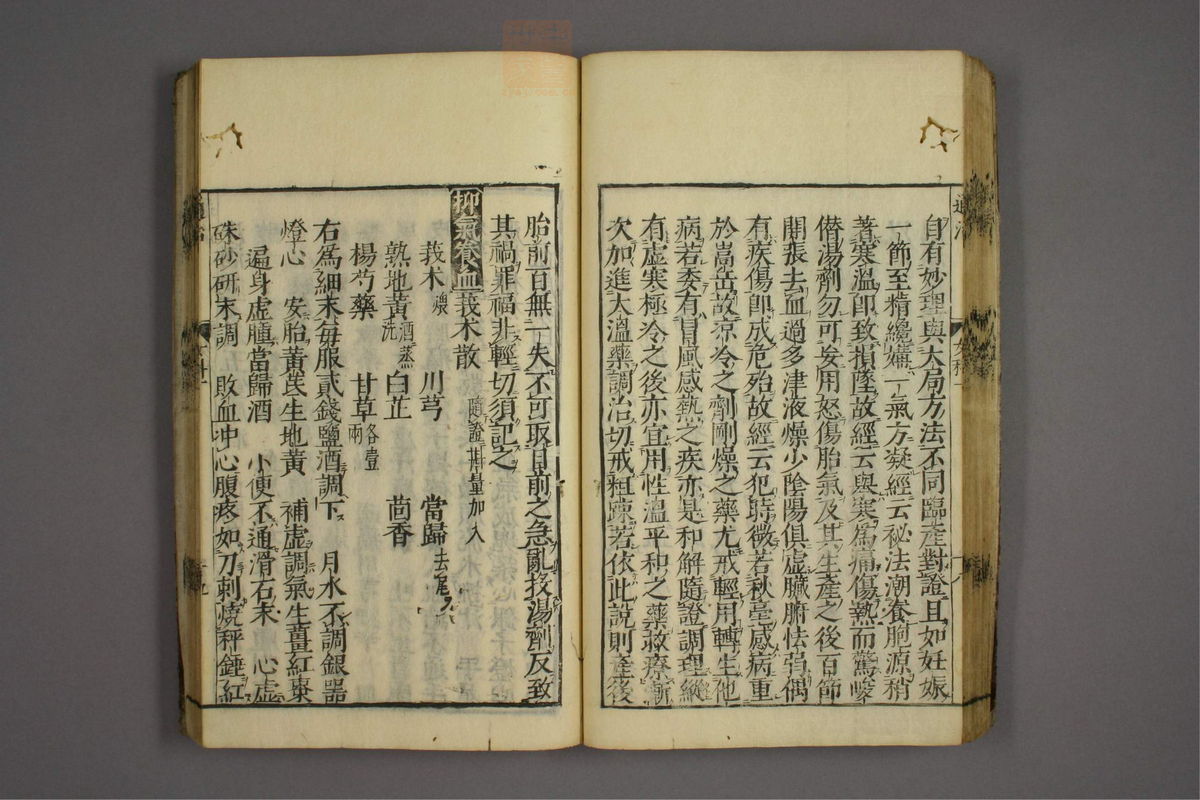 自有妙理與大局方法不同臨産對證且如妊娠
一節至精纔媾一氣方凝經云祕法潮養胞源稍
著寒溫卽致損墜故經云與寒爲痛傷熱而驚峻
僭湯劑勿可妄用怒傷胎氣及其生產之後百節
開張去血過多津液燥少陰陽俱虛臟腑怯弱偶
有疾傷卽成危殆故經云犯時微若秋毫感病重
於嵩岳故凉冷之劑剛燥之藥尤戒輕用轉生他
病若委有冒風感熱之疾亦是和解隨證調理縱
有虛寒極冷之後亦宜用性溫平和之藥救療漸
次加進大溫藥調治切戒粗踈若依此說則產後
胎前百無一失不可取目前之急亂投湯劑反致
其禍罪福非輕切須記之
抑氣養血莪朮散 隨證斟量加入
莪朮 煨 川芎 當歸 去尾
熟地黃 酒蒸洗 白芷 茴香
楊芍藥 甘草 各壹兩
右爲細末每服貳錢鹽酒調下 月水不調銀器
燈心 安胎黃茋生地黃 補虛調氣生薑紅棗
遍身虛腫當歸酒 小便不通滑石末 心虛
硃砂研末調 敗血冲心腹疼如刀刺燒秤錘紅
通治
女科一
十八